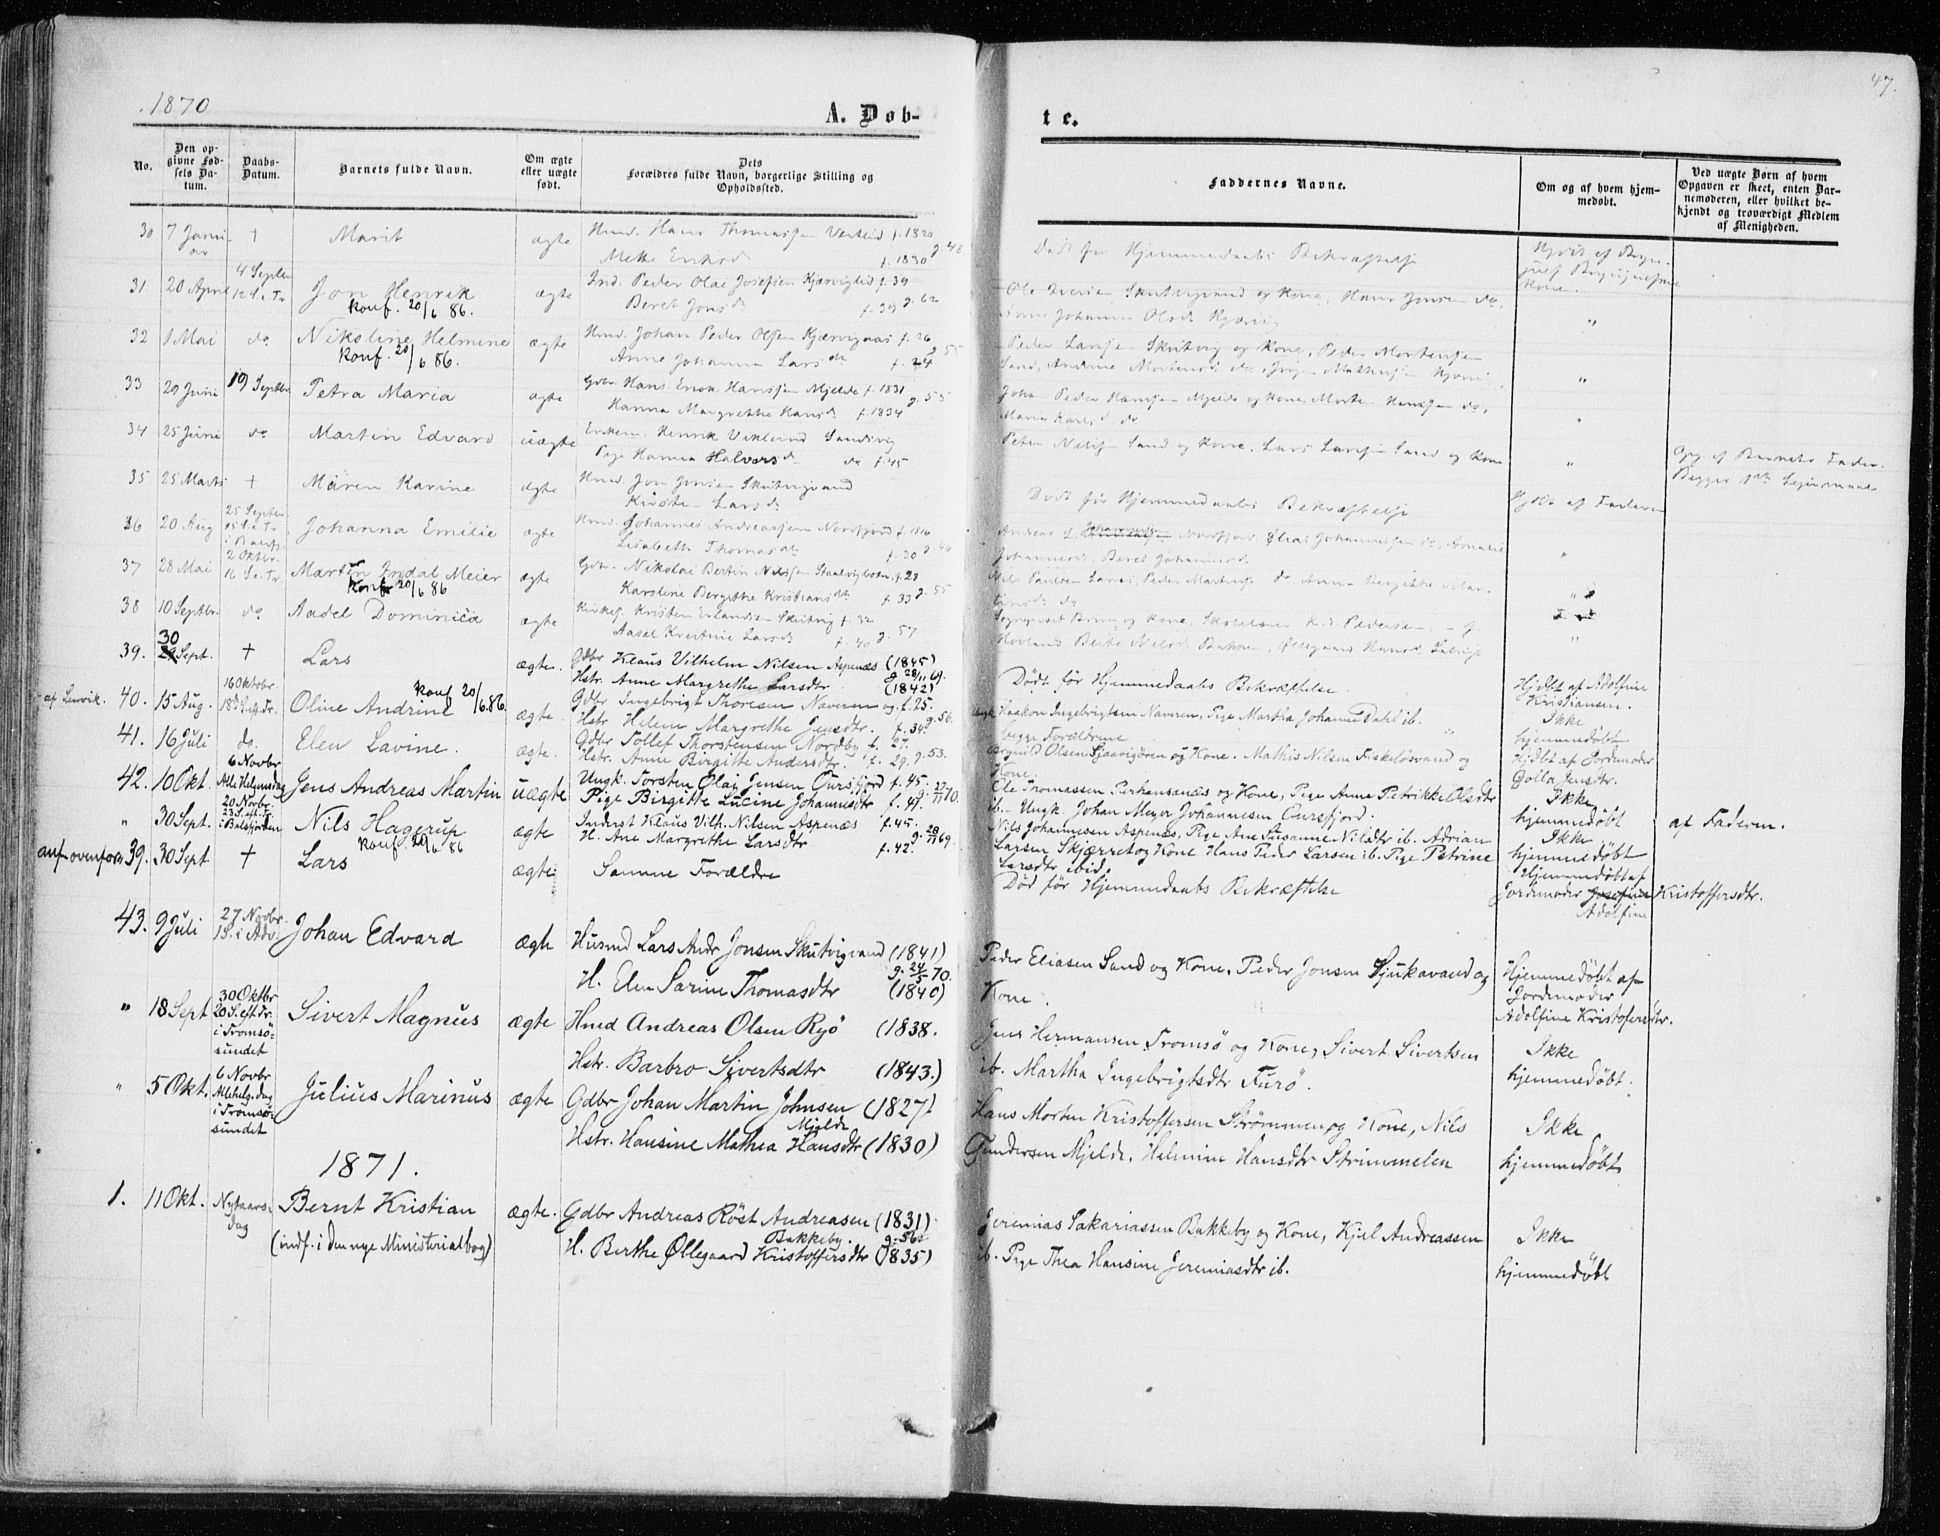 1870
A. Døb-
te.
47.
No.
Den op-
givne Fød-
sels Da-
tum.
Daabs-
Datum.
Barnets fulde Navn.
Om ægte
eller uægte
født.
Dets
Forældres fulde Navn, borgerlige Stilling og
Opholdssted.
Faddernes Navne.
Om og af hvem hjem-
medøbt.
Ved uægte Børn af hvem
Opgaven er skeet, enten Bar-
nemoderen, eller hvilket be-
kjendt og troværdigt Medlem
af Menigheden.
30 7 Janu-
ar
+
Marit
ægte
Hmd. Hans Thomassen f. 1820
f. 1830 g. 48
Død før Hjemmedaabs Bekræftelse
31 20 April
4 Septbr
12 S. e. Tr.
Jon Henrik
konf. 20/6 86.
ægte
Ind. Peder Olai Josefsen Kjærvigeid f. 39
Beret Jonsd f. 39 g. 62
32 1 Mai do
Nikoline Helmine
konf. 20/6 86.
ægte
Hmd. Johan Peder Olsen f. 26
Anne Johanna Larsdtr f. 24 g. 55
Peder Larsen Skutvig og Kone, Peder Mortensen
33 29 Juni 19 Septbr
Petra Maria
ægte
Gdbr. Hans Enok Hansen Mjelde f. 1831
Hanna Margrethe Hansd f. 1834 g. 55
Johan Peder Hansen Mjelde og Kone, Morten Hansen do,
34 25 Juni do
Martin Edvard
uægte
Enkem. Henrik Viklund Sandvig
Pige Hanna Halvorsd do f. 45
Peter Nilsen Sand og Kone, Lars Larsen Sand og Kone
Opg. af Barnets Fader.
35 25 Marts +
Maren Karine
ægte
Hmd Jon Jonsen Skutvigvand
Larsd
Død før Hjemmedaabs Bekræftelse
Hjdbt af Faderen
36 20 Aug
25 Septbr
15 S. e. Tr.
i Balsfj.
Johanna Emilie
ægte
Hmd. Johannes Andreassen Nordfjord f. 1816
Lisabeth Thomasdtr f. 30 g. 46
Johannesd. Beret Johannesd.
37 28 Mai
2 Oktbr.
16 S. e. Tr.
Martin Indal Meier
konf. 20/6 86
ægte
Gdbr. Nikolai Bertin Nilsen f. 28
Karoline Bergithe Kristiansdtr f. 33 g. 55
38 10 Septbr. do
Aadel Dominica
ægte
Kirkesg. Kristen Erlandsen Skutvig f. 32
Larsd f. 40 g. 57
39. 30
29 Sept. +
Lars
ægte.
Gdbr Klaus Vilhelm Nilsen Aspenæs (1845)
Hstr. Anne Margrethe Larsdtr (1842) g 28/11 69.
Dødt før Hjemmedaabs Bekræftelse.
Hjdbt af Adolfine
Kristiansen.
af Lenvik. 40. 15 Aug.
16 Oktobr
18d S. eft. Tr.
Oline Andrine
konf 20/6.86.
ægte.
Gdbr Ingebrigt Thoresen Naveren og f. 25.
Hstr Helene Margrethe Jensdtr. f. 34 g. 56.
Ungk Haakon Ingebrigtsen Naveren, Pige Martha Johanne Dahl ib.
begge Forældrene
Ikke
hjemmedøbt
41. 16 Juli do.
Elen Lavine.
ægte.
Gdbr Tollef Thorstensen Nordby f. 27.
Hstr. Anne Birgitte Andersdtr. f. 29. g. 53.
Olsen og Kone. Mathis Nilsen Fiskeløsvand og
Kone.
Hjdbt af Jordmoder
Golla Jensdtr.
42. 10 Okt.
6 Novbr
Alle Helgensdag
Jens Andreas Martin
uægte
Ungk. Torsten Olaj Jensen Oursfjord f. 45.
Pige Birgitte Lucine Johannesdtr f. 47. g. 27/11 70.
Ole Thomassen Perhansenæs og Kone, Pige Anne Petrikke Olsdtr
ib. Ungk. Johan Meyer Johannesen Oursfjord.
Ikke
hjemmedøbt
af Faderen.
" 30 Sept.
20 Novbr.
23 S. eft. Tr.
i Balsfjorden
Nils Hagerup
konf. 20/6 86
ægte
Inderst Klaus Vilh. Nilsen Aspenæs f. 45.
H. Ane Margrethe Larsdtr f. 42. g. 28/11 69.
Nils Johannesen Aspenæs, Pige Ane Susanne Nilsdtr ib. Adrian
Larsen Skjærret og Kone Hans Peder Larsen ib. Pige Petrine
Larsdtr ibid.
Ikke
hjemmedøbt
anf. ovenfor 39. 30 Sept +
Lars
ægte
Samme Forældre
Død før Hjemmedaabs Bekræftelse
Hjemmedøbt af
Jordmoder Josefine Kristoffersdtr.
Adolfine
43. 9 Juli
27 Novbr
1 S. i Adv.
Johan Edvard
ægte
Husmd Lars Andr Jonsen Skutvigvand (1841)
H. Elen Sarine Thomasdtr (1840) g. 24/5 70.
Peder Eliasen Sand og Kone, Peder Jonsen Sjukavand og
Kone.
Hjemmedøbt af
Jordmoder
Adolfine Kristofersdtr.
" 18 Sept
30 Oktbr
20 S. eft Tr.
i Tromsø-
sundet
Sivert Magnus
ægte
Hmd Andreas Olsen Ryø (1838.
Hstr. Barbro Sivertsdtr (1843.)
Jens Hermansen Tromsø og Kone, Sivert Sivertsen
ib. Martha Ingebrigtsdtr Furø.
Ikke
hjemmedøbt.
" 5 Okt.
6 Novbr
Allehelg. dag
i Tromsø-
sundet
Julius Marinus
ægte
Gdbr Johan Martin Johnsen (1827)
Mjelde
Hstr. Hansine Mathea Hansdtr (1830)
Hans Morten Kristoffersen Strømmen og Kone, Nils
Gundersen Mjelde, Helmine Hansdtr Strimmelen
Ikke
hjemmedøbt
1871.
1. 11 Okt.
Nytaars-
dag
Bernt Kristian
(indf. i den nye Ministerialbog)
ægte.
Gdbr Andreas Røst Andreasen (1831)
Bakkeby. g. 56
H. Berthe Øllegaard Kristoffersdtr (1835)
Jeremias Sakariassen Bakkeby og Kone, Kjel Andreassen
ib. Pige Thea Hansine Jeremiasdtr ib.
Ikke
hjemmedøbt